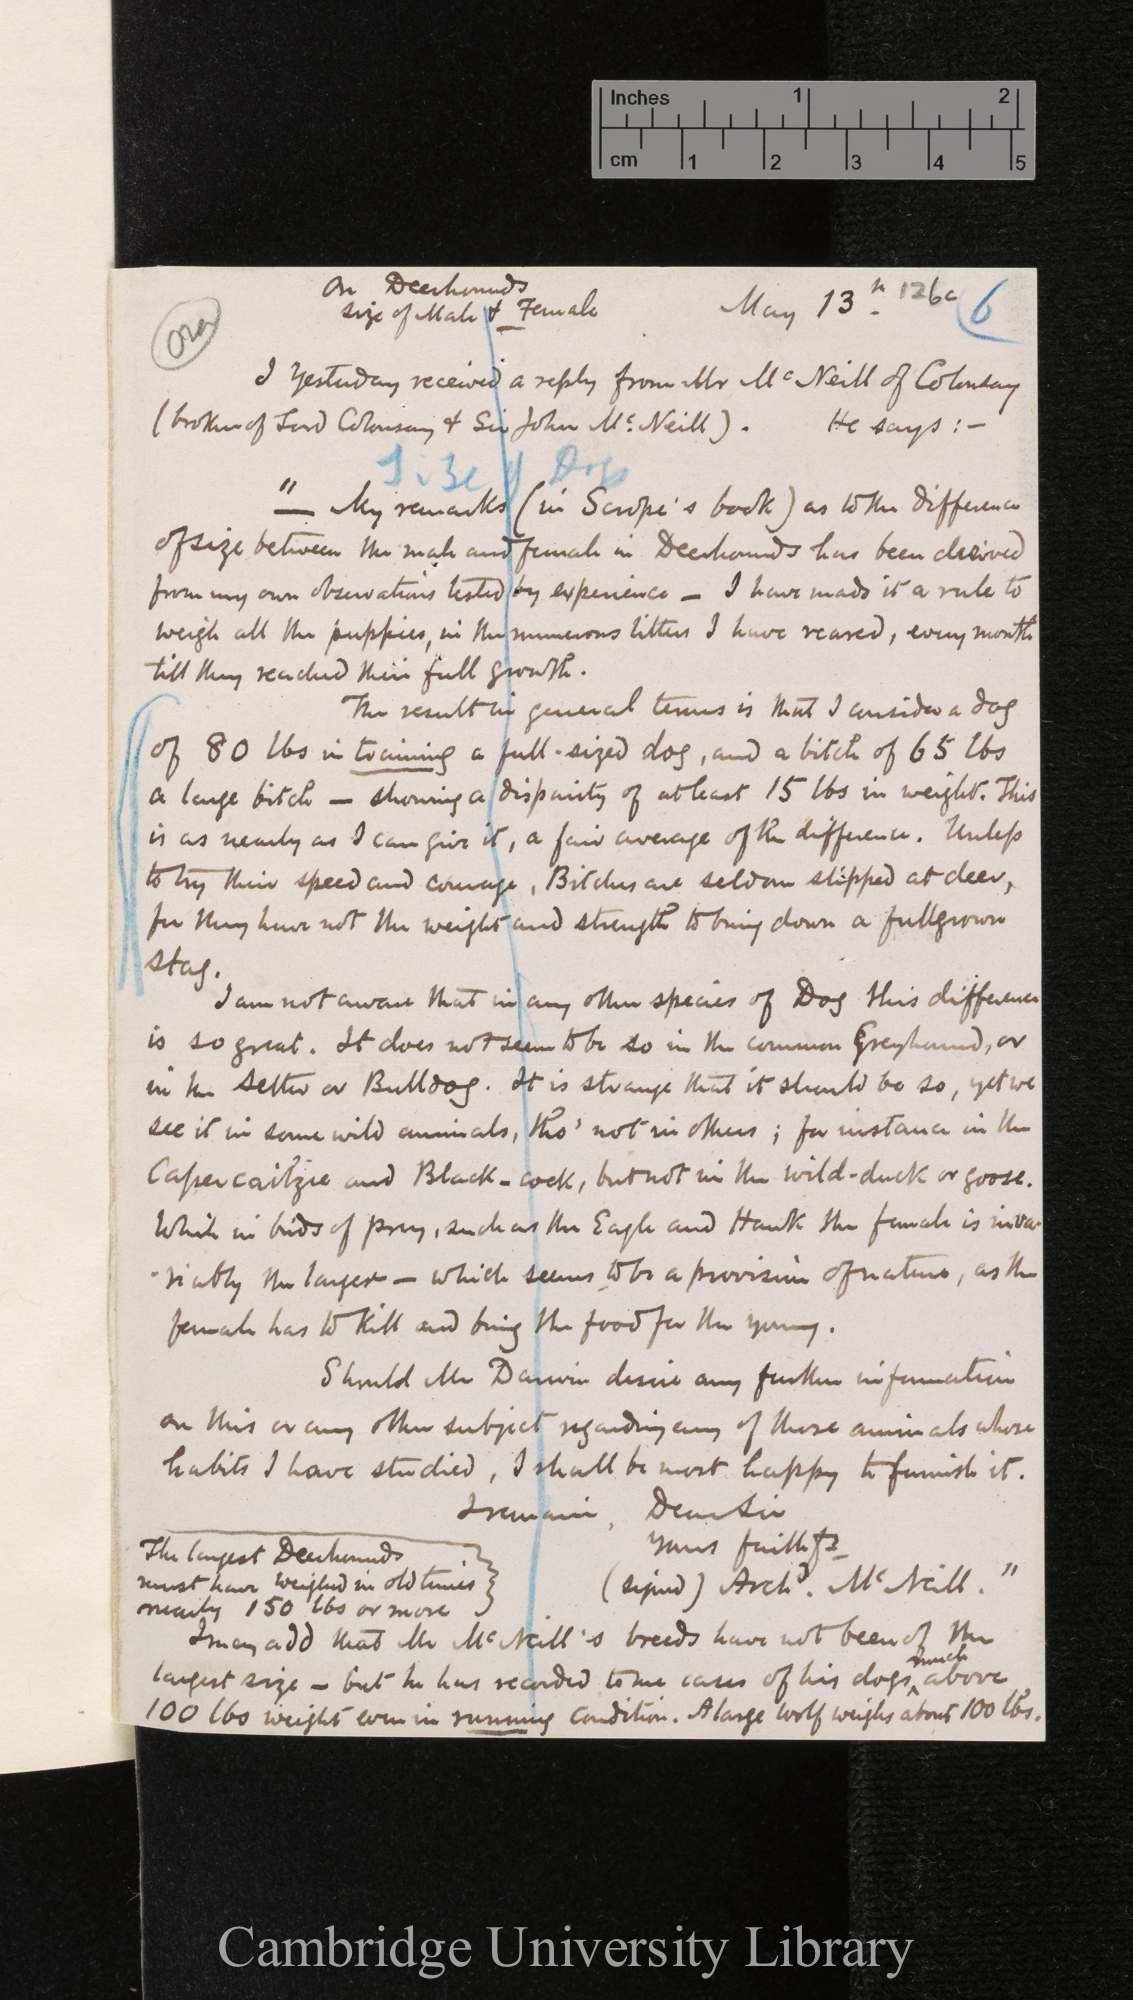 Inches 1 2
cm 1 2 3 4 5
On Deerhounds
size of Male & Female
May 13th 126a 6
I yesterday received a reply from Mr McNeill of Colonsay
(brother of Lord Colonsay & Sir John McNeill). He says:—
Size of Dogs
"— My remarks (in Scrope's book) as to the difference
of size between the male and female in Deerhounds has been derived
from my own observations tested by experience — I have made it a rule to
weigh all the puppies, in the numerous litters I have reared, every month
till they reached their full growth.
The result in general terms is that I consider a dog
of 80 lbs in training a full-sized dog, and a bitch of 65 lbs
a large bitch — showing a disparity of at least 15 lbs in weight. This
is as nearly as I can give it, a fair average of the difference. Unless
to try their speed and courage, Bitches are seldom slipped at deer,
for they have not the weight and strength to bring down a fullgrown
stag.
I am not aware that in any other species of Dog this difference
is so great. It does not seem to be so in the common Greyhound, or
in the Setter or Bulldog. It is strange that it should be so, yet we
see it in some wild animals, tho' not in others; for instance in the
Capercailzie and Black-cock, but not in the wild-duck or goose.
While in birds of prey, such as the Eagle and Hawk the female is inva-
-riably the larger — which seems to be a provision of nature, as the
female has to kill and bring the food for the young.
Should Mr Darwin desire any further information
on this or any other subject regarding any of those animals whose
habits I have studied, I shall be most happy to furnish it.
I remain, Dear Sir
Yours faithfy
(signed) Archd. McNeill."
The largest Deerhounds
must have weighed in old times
nearly 150 lbs or more
I may add that Mr McNeill's breeds have not been of the
largest size — but he has recorded to me cases of his dogs much above
100 lbs weight even in running condition. A large wolf weighs about 100 lbs.
Cambridge University Library